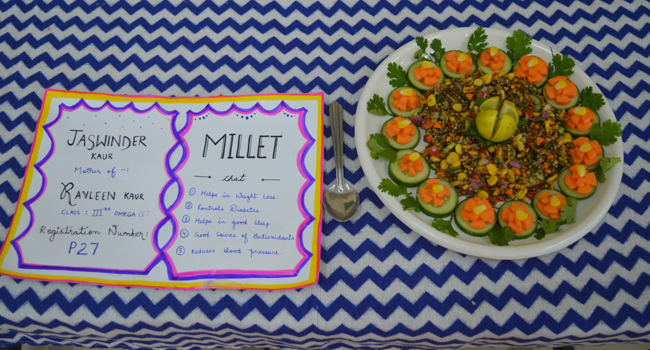 JASWINDER
KAUR
Mother of -
RAVLEEN KAUR
CLASS : IIIRD OMEGA
Registration Number:
P27
MILLET
chat
① Helps in Weight Loss
② Controls Diabetes
③ Helps in good Sleep
④ Good Source of Antioxidants
⑤ Reduces blood pressure